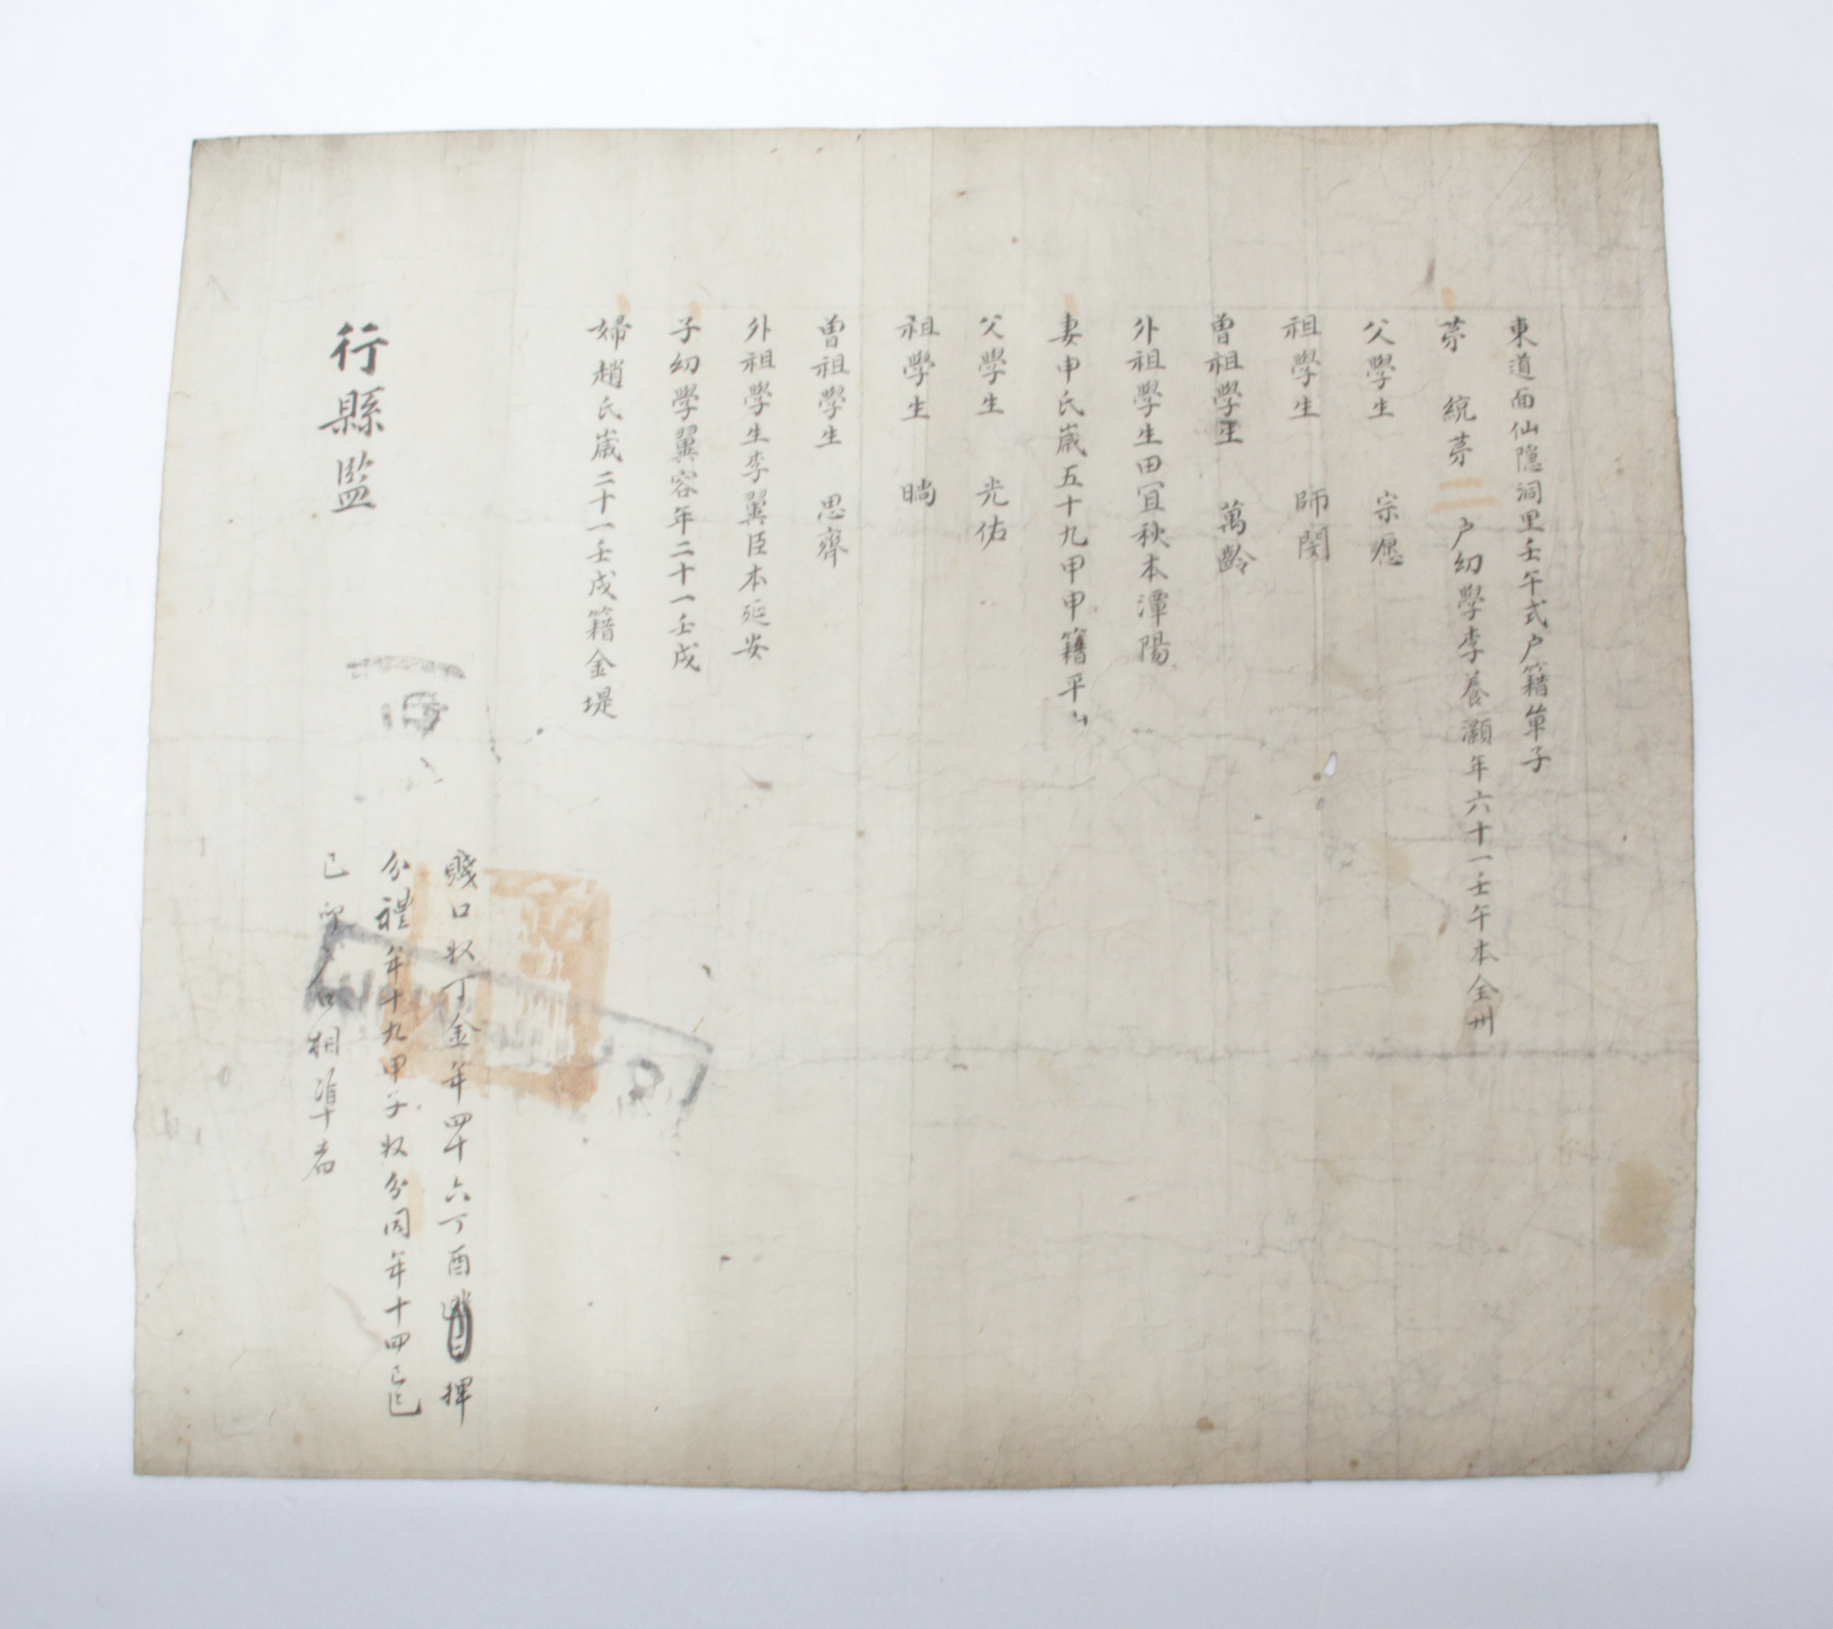 東道面仙隱洞里壬午式戶籍單子
第 統第二戶幼學李養灝年六十一壬午本全州
父學生 宗愿
祖學生 師閔
曾祖學生 萬齡
外祖學生田宜秋本潭陽
妻申氏歲五十九甲申籍平山
父學生 光佑
祖學生 晌
曾祖學生 思齊
外祖學生李翼臣本延安
子幼學翼容年二十一壬戌
婦趙氏歲二十一壬戌籍金堤
賤口奴丁金年四十六丁酉 婢
分禮年十九甲子奴分同年十四己巳
己卯戶口相準者
行縣監